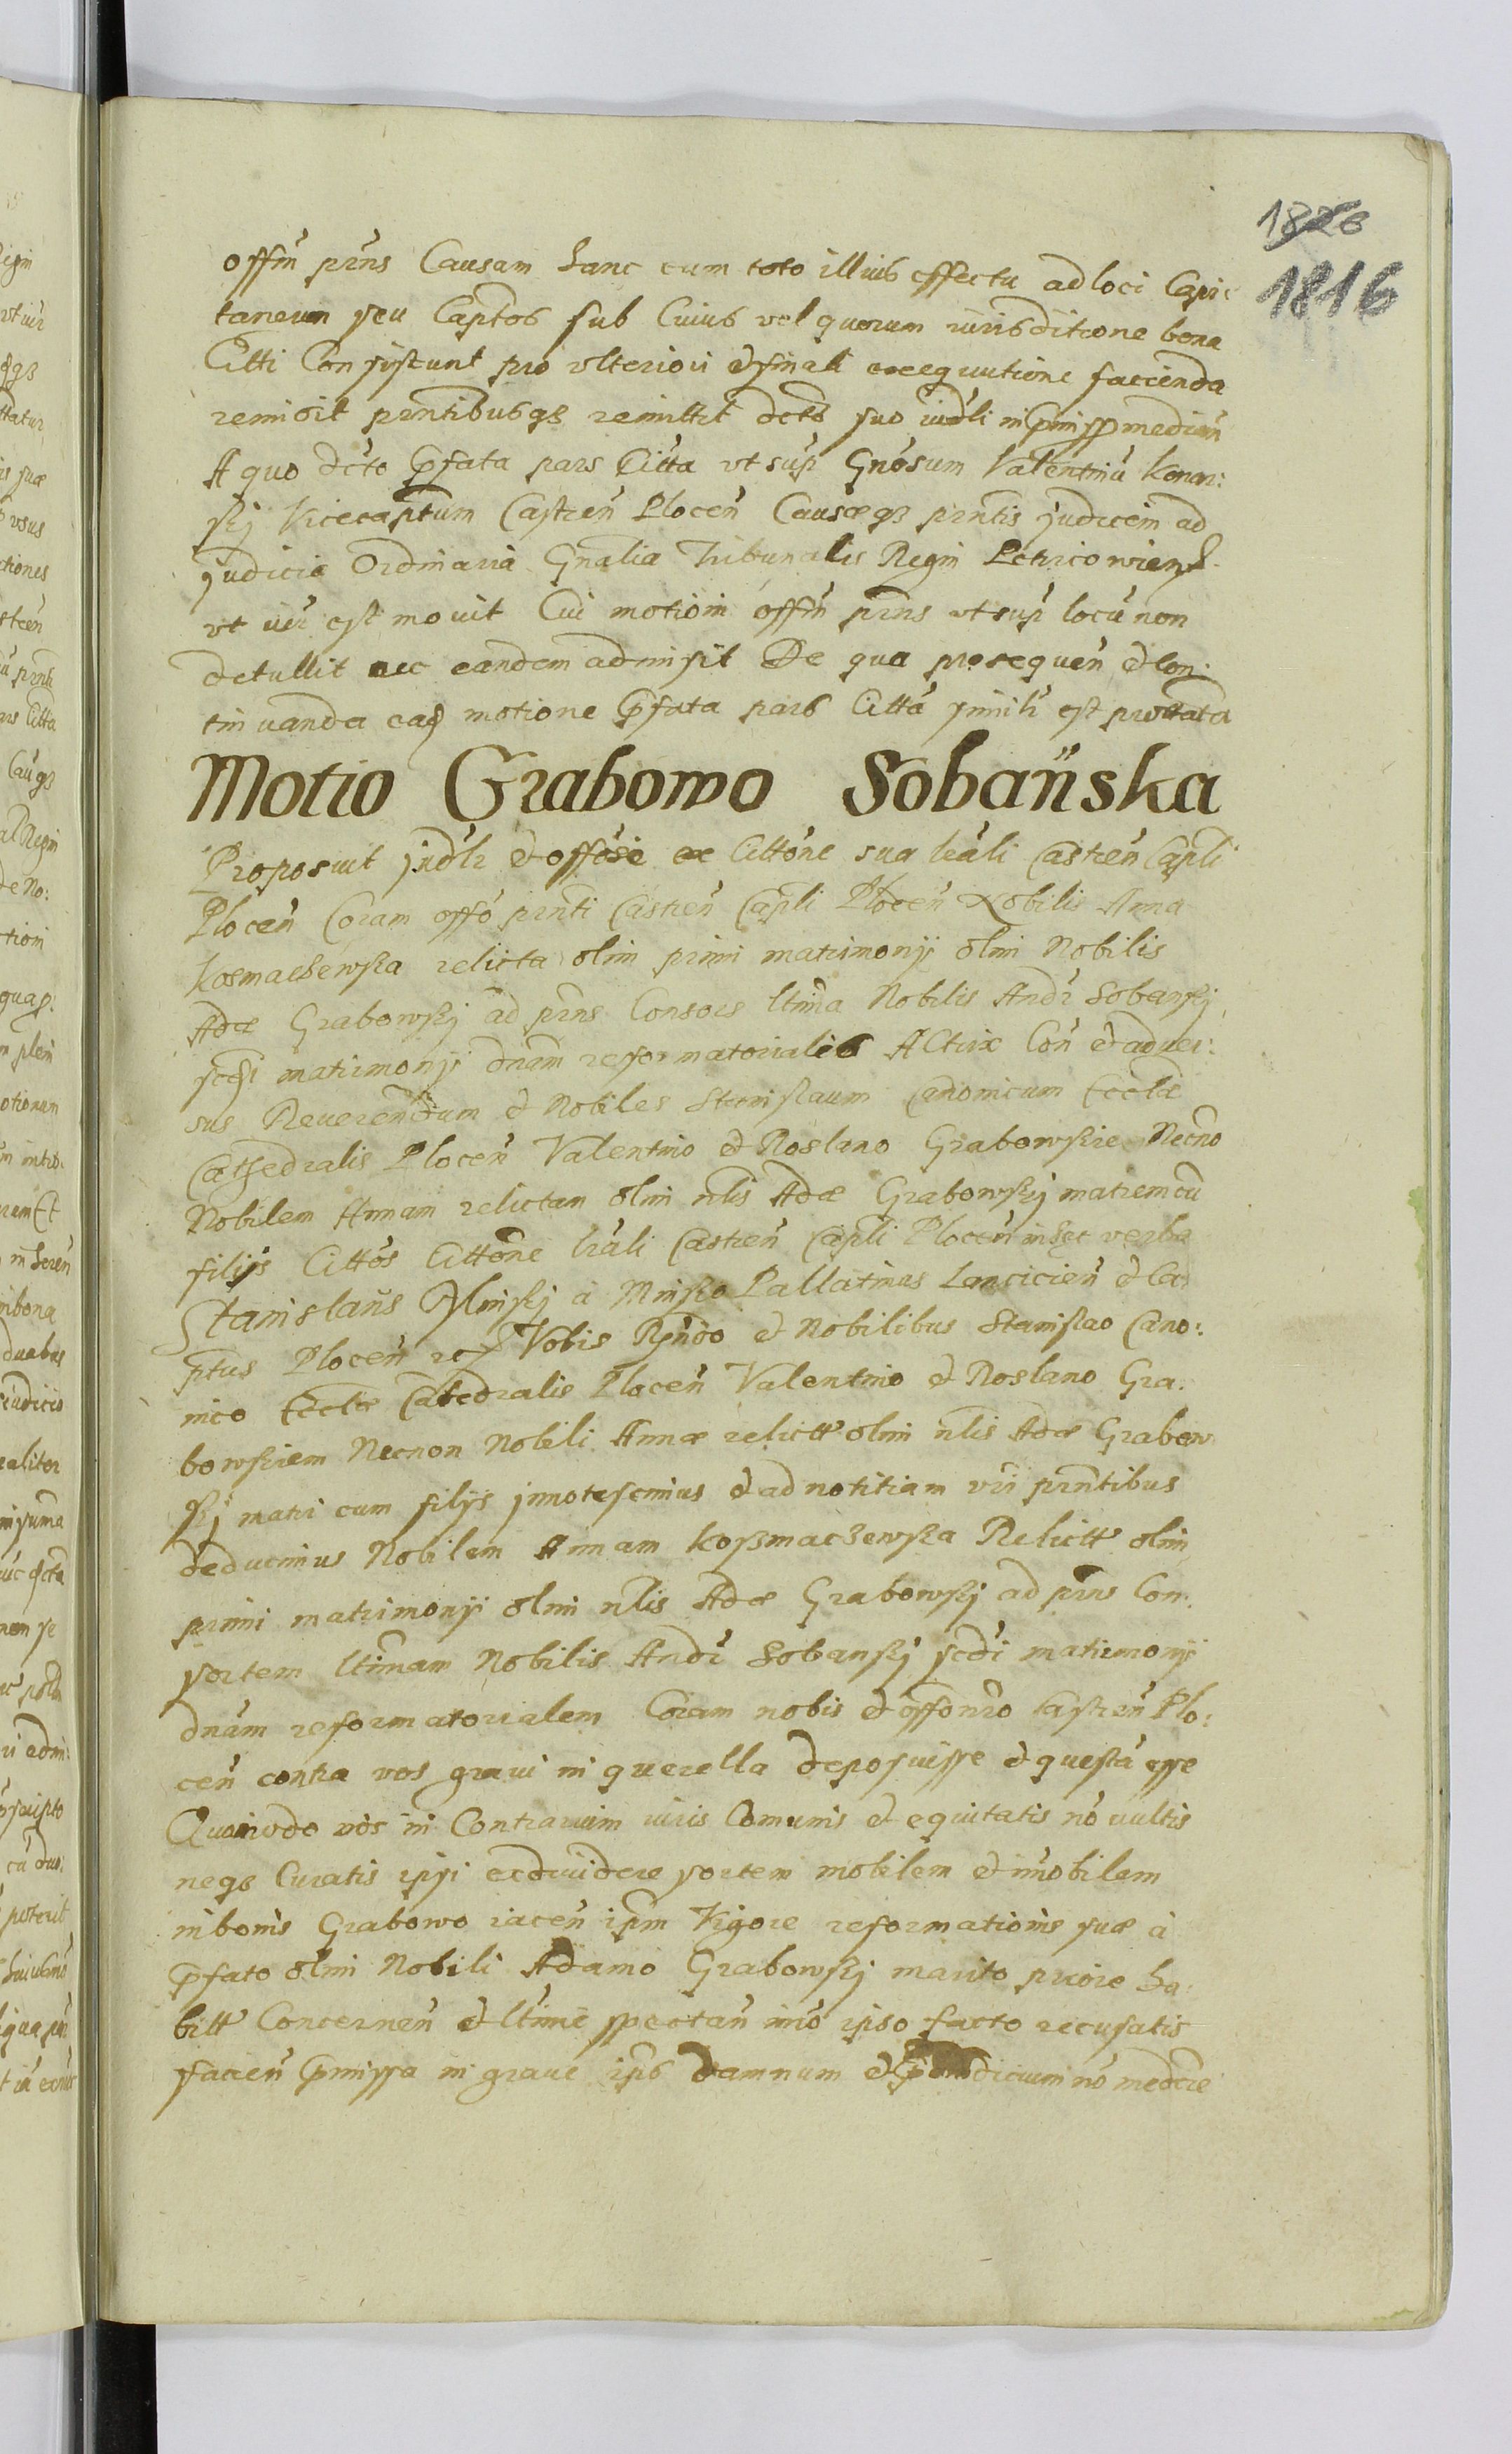 1826
1816
offm̃ pr̃ns Causam hanc cum toto illius effectu ad loci Capi:
taneum seu Captos sub Cuius vel quorum iurisditione bona
Citti Consistunt pro ulteriori et finali exequutione facienda
remisit prntibusqs remittit dcto suo iudli mediañ
A quo dcto Pfata pars Citta vt supr Gnosum Valentinũ Konar:
skj Vicecaptum Castreñ Ploceñ Causæqs prntis judicem ad
judicia Ordinaria Gnalia Tribunalis Regni Petricowiens
vt est movit Cui motioni offm̃ prns vt supr locũ non
detullit nec eandem admisit De qua prosequeñ et con:
tinuanda eadē motione Pfata pars Citta simili est prottata
Motio Grabowo Sobańska
Proposuit judlr et offose ex Cittone sua lrali Castreñ Capli
Ploceñ Coram offo prnti Castreñ Capli Ploceñ Nobilis Anna
Kosmachewska relicta olim primi matrimonij olim Nobilis
Adæ Grabowskj ad prns Consors ltima Nobilis Andr Sobanskj
scdi matrimonij dnam reformatorialis ACtrix Coñ et adver:
sus Reverendum et Nobiles Stanislaum Canonicum Eccłæ
Cathedralis Ploceñ Valentino et Roslano Grabowskie Necno
Nobilem Annam relictam olim nlis Adæ Grabowskj matrem cũ
filijs Cittos Cittone lrali Castreñ Capli Ploceñ in hęc verba
Stanislaus Minskj à Minsko Pallatinus Lancicieñ et Ca:
ptus Ploceñ Vobis Rñdo et Nobilibus Stanislao Cano:
nico Eccłæ Catedralis Ploceñ Valentino et Roslano Gra:
bowskiem Necnon Nobili Annæ relictæ olim nlis Adæ Grabow
skj matri cum filijs jnnotescimus et ad notitiam vri prntibus
deducimus Nobilem Annam Koszmachewska Relictæ olim
primi matrimonij olim nlis Adæ Grabowskj ad prns Con:
sortem ltimam Nobilis Andr Sobanskj scdi matrimonij
dnam reformatorialem Coram nobis et offo nro Castreñ Plo:
ceñ contra vos gravi in querella deposuisse et questã esse
Quomodo vos in Contrarium iuris Comunis et equitatis nõ vultis
neqs Curatis ipsi exdividere sortem mobilem et im̃obilem
in bonis Grabowo iaceñ ipm̃ Vigore reformationis suæ à
Pfato olim Nobili Adamo Grabowskj marito priore ha:
bitæ Concerneñ et ltime spectañ im̃o ipso facto recusatis
facieñ Pmissa in grave ips damnum et nõ mediocre